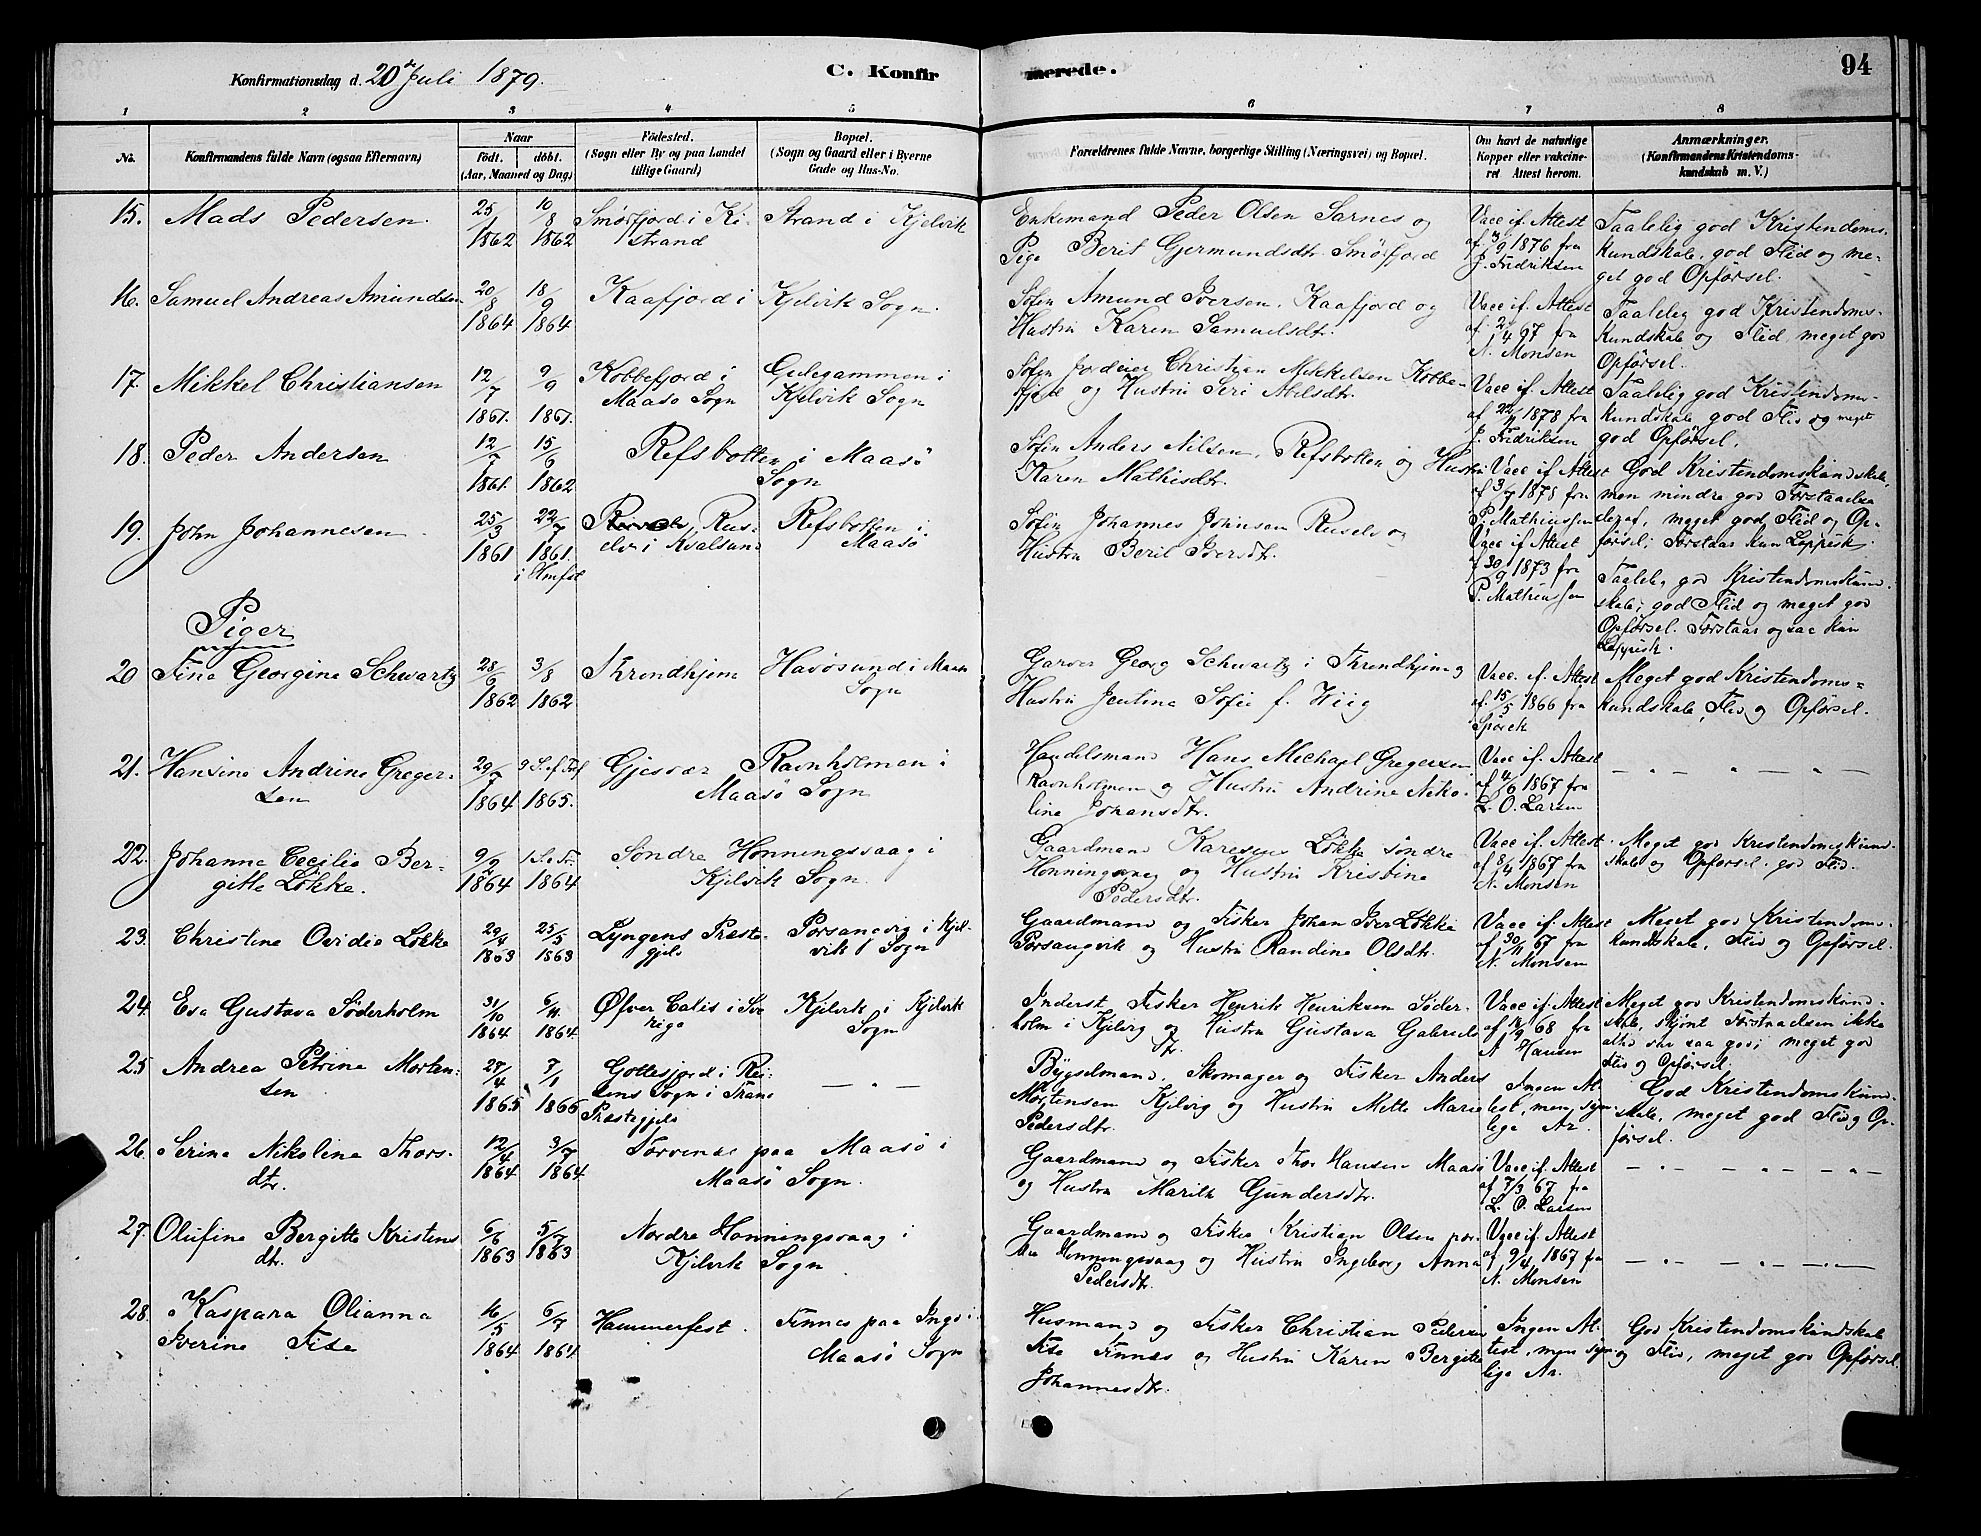 Konfirmationsdag d. 20de Juli 1879.
C. Konfirmerede.
94
1 2 3 4 5 6 7 8
No.
Konfirmandens fulde Navn (ogsaa Efternavn)
Naar
født. døbt.
(Aar, Maaned og Dag)
Fødested.
(Sogn eller By og paa Landet
tillige Gaard)
Bopæl.
(Sogn og Gaard eller i Byerne
Gade og Hus-No.
Forældrenes fulde Navne, borgerlige Stilling (Næringsvei) og Bopæl.
Om havt de naturlige
Kopper eller vakcine-
ret Attest herom.
Anmærkninger.
(Konfirmandens Kristendoms-
kundskab m. V.)
15. Mads Pedersen
25/1 1862
10/8 1862
Smørfjord i Ki-
strand
Strand i Kjelvik
Enkemand Peder Olsen Sarnes og
Pige Berit Gjermundsdtr. Smørfjord
Vacc. if. Attest
af 3/9 1876 fra
J. Fredriksen
Taalelig god Kristendoms-
kundskab, god Flid og me-
get god Opførsel.
16. Samuel Andreas Amundsen
20/8 1864
18/9 1864
Kaafjord i Kjelvik Sogn.
Søfin Amund Iversen, Kaafjord og
Hustru Karen Samuelsdtr.
Vacc. if. Attest
af 2/4 67 fra
N. Monsen
Taalelig god Kristendoms-
kundskab og Flid, meget god
Opførsel.
17. Mikkel Christiansen
12/7 1861.
9/9 1861.
Kobbefjord i
Maasø Sogn
Gulgammen i
Kjelvik Sogn
Søfin Christian Mikkelsen Kobbe-
fjord og Hustru Siri Abelsdtr.
Vacc. if. Attest
af 22/4 1878 fra
J. Fredriksen
Taalelig god Kristendoms-
kundskab god Flid og meget
god Opførsel.
18. Peder Andersen
12/7 1861.
15/6 1862
Refsbotten i Maasø
Sogn
Søfin Anders Nilsen, Refsbotten og Hustru
Karen Mathisdtr.
Vacc if. Attest
af 3/7 1878 fra
P. Mathiussen
God Kristendomskundskab,
men mindre god Forstaaelse
deraf, meget god Flid og Op-
førsel; Forstaar kun Lappisk.
19. John Johannesen
25/3 1861
22/7 1861.
i Hmfst
Rus-
elv i Kvalsund
Refsbotten i
Maasø
Søfin Johannes Johnsen Ruselv og
Hustru Berit Iversdtr.
Vacc if Attest
af 30/9 1873 fra
P. Mathiussen
Taalelig god Kristendomskund-
skab, god Flid og meget god
Opførsel. Forstaar ogsaa kun
Lappisk.
Piger
20 Tina Georgine Schwartz
28/6 1862
3/8 1862
Throndhjem
Havøsund i Maasø
Sogn
Garver Georg Schwartz i Throndhjem og
Hustru Jentine Sofie f. Wiig
Vacc. if. Attest
af 15/5 1866 fra
Spørck
Meget god Kristendoms-
kundskab, Flid og Opførsel.
21. Hansine Andrine Greger-
sen
29/7 1864
9 S. ef. Trf 1865.
Gjesvær
Ravnholmen i
Maasø Sogn
Handelsmand Hans Michael Gregersen
Ravnholmen og Hustru Andrine Niko-
line Johansdtr.
Vacc if. Attest
af 4/6 1867 fra
L. O. Larsen
— " — " — " —
22. Johanna Cecilie Ber-
gitte Løkke.
9/2 1864
1 S. e. Tr. 1864
Søndre Honningsvaag i
Kjelvik Sogn.
Gaardmand Karesius Løkke søndre
Honningsvaag og Hustru Kristine
Pedersdtr.
Vacc if. Attest
af 8/4 1867 fra
N. Monsen
Meget god Kristendomskund-
skab og Opførsel. god Flid.
23. Christine Ovidia Løkke
29/4 1863
25/5 1863
Lyngens Præste-
gjeld
Porsangvig i Kjel-
vik Sogn
Gaardmand og Fisker Johan Iver Løkke
Porsangvik og Hustru Randine Olsdtr.
Vacc if Attest
af 30/11 67 fra
N. Monsen
Meget god Kristendoms-
kundskab, Flid og Opførsel.
24. Eva Gustava Söderholm
31/10 1864
6/11 1864.
Øfver Calis i Sve
rige
Kjelvik i Kjelvik
Sogn
Inderst Fisker Henrik Henriksen Søder-
holm i Kjelvig og Hustru Gustava Gabriels
dtr.
Vacc if. Attest
af 14/9 68 fra
A Hansen
Meget god Kristendomskund-
skab, skjønt Forstaaelsen ikke
altid var saa god; meget god
Flid og Opførsel.
25. Andrea Petrine Morten-
sen
27/4 1865
7/1 1866
Gottesfjord i Rei-
sens Sogn i Tranø
Præstegjeld
— " —
Bygselmand, Skomager og Fisker Anders
Mortensen Kjelvig og Hustru Mette Marie
Pedersdtr.
Ingen At-
test, men syn-
lige Ar.
God Kristendomskund-
skab, meget god Flid og Op-
førsel.
26. Serine Nikoline Thors-
dtr.
12/4 1864
3/7 1864
Torvenes paa Maasø i
Maasø Sogn.
Gaardmand og Fisker Thor Hansen Maasø
og Hustru Marith Gundersdtr.
Vacc if. Attest
af 7/3 67 fra
L. O. Larsen
— " — " — " —
27. Olufine Bergitte Kristens
dtr.
6/6 1863
5/7 1863
Nordre Honningsvaag i
Kjelvik Sogn
Gaardmand og Fisker Kristian Olsen nor-
dre Honningsvaag og Hustru Ingeborg Anna
Pedersdtr.
Vacc if. Attest
af 9/4 1867 fra
N. Monsen
— " — " — " —
28. Kaspara Olianna
Iverine Fise
16/5 1864
6/7 1864
Hammerfest
Finnes paa Ingø i
Maasø Sogn
Husmand og Fisker Christian Pedersen
Fise Finnes og Hustru Karen Bergitte
Johannesdtr.
Ingen At-
test, men syn-
lige Ar.
God Kristendomskundskab
og Flid, meget god Opførsel.